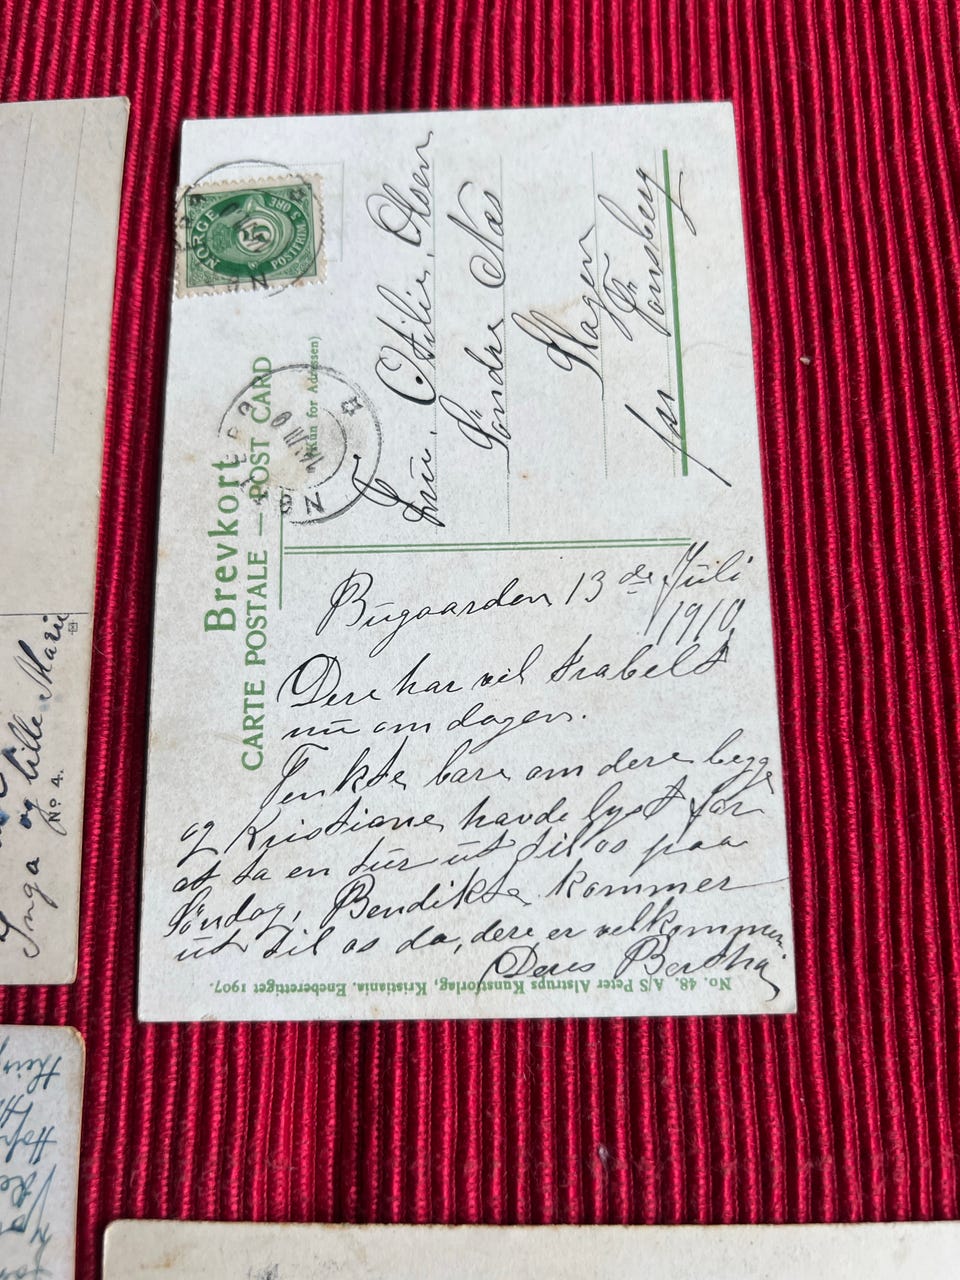 Brevkort
CARTE POSTALE — POST CARD
(Kun for Adressen)
NORGE
POSTFRIM. 5 ØRE
5
Frue. Otilie. Olsen
Søndre Næs
Skagen
pr Tønsberg
Bugaarden 13de Juli
1910
Dere har vel trabelt
nu om dagen.
Tenkte bare om dere begge
og Kristiane havde lyst for
at ta en tur ut til os paa
Søndag, Bendikte kommer
ut til os da, dere er velkommen,
Deres Bertha
No. 48. A/S Peter Alstrups Kunstforlag, Kristiania. Eneberettiget 1907.
Inga og lille Marie
No 4.